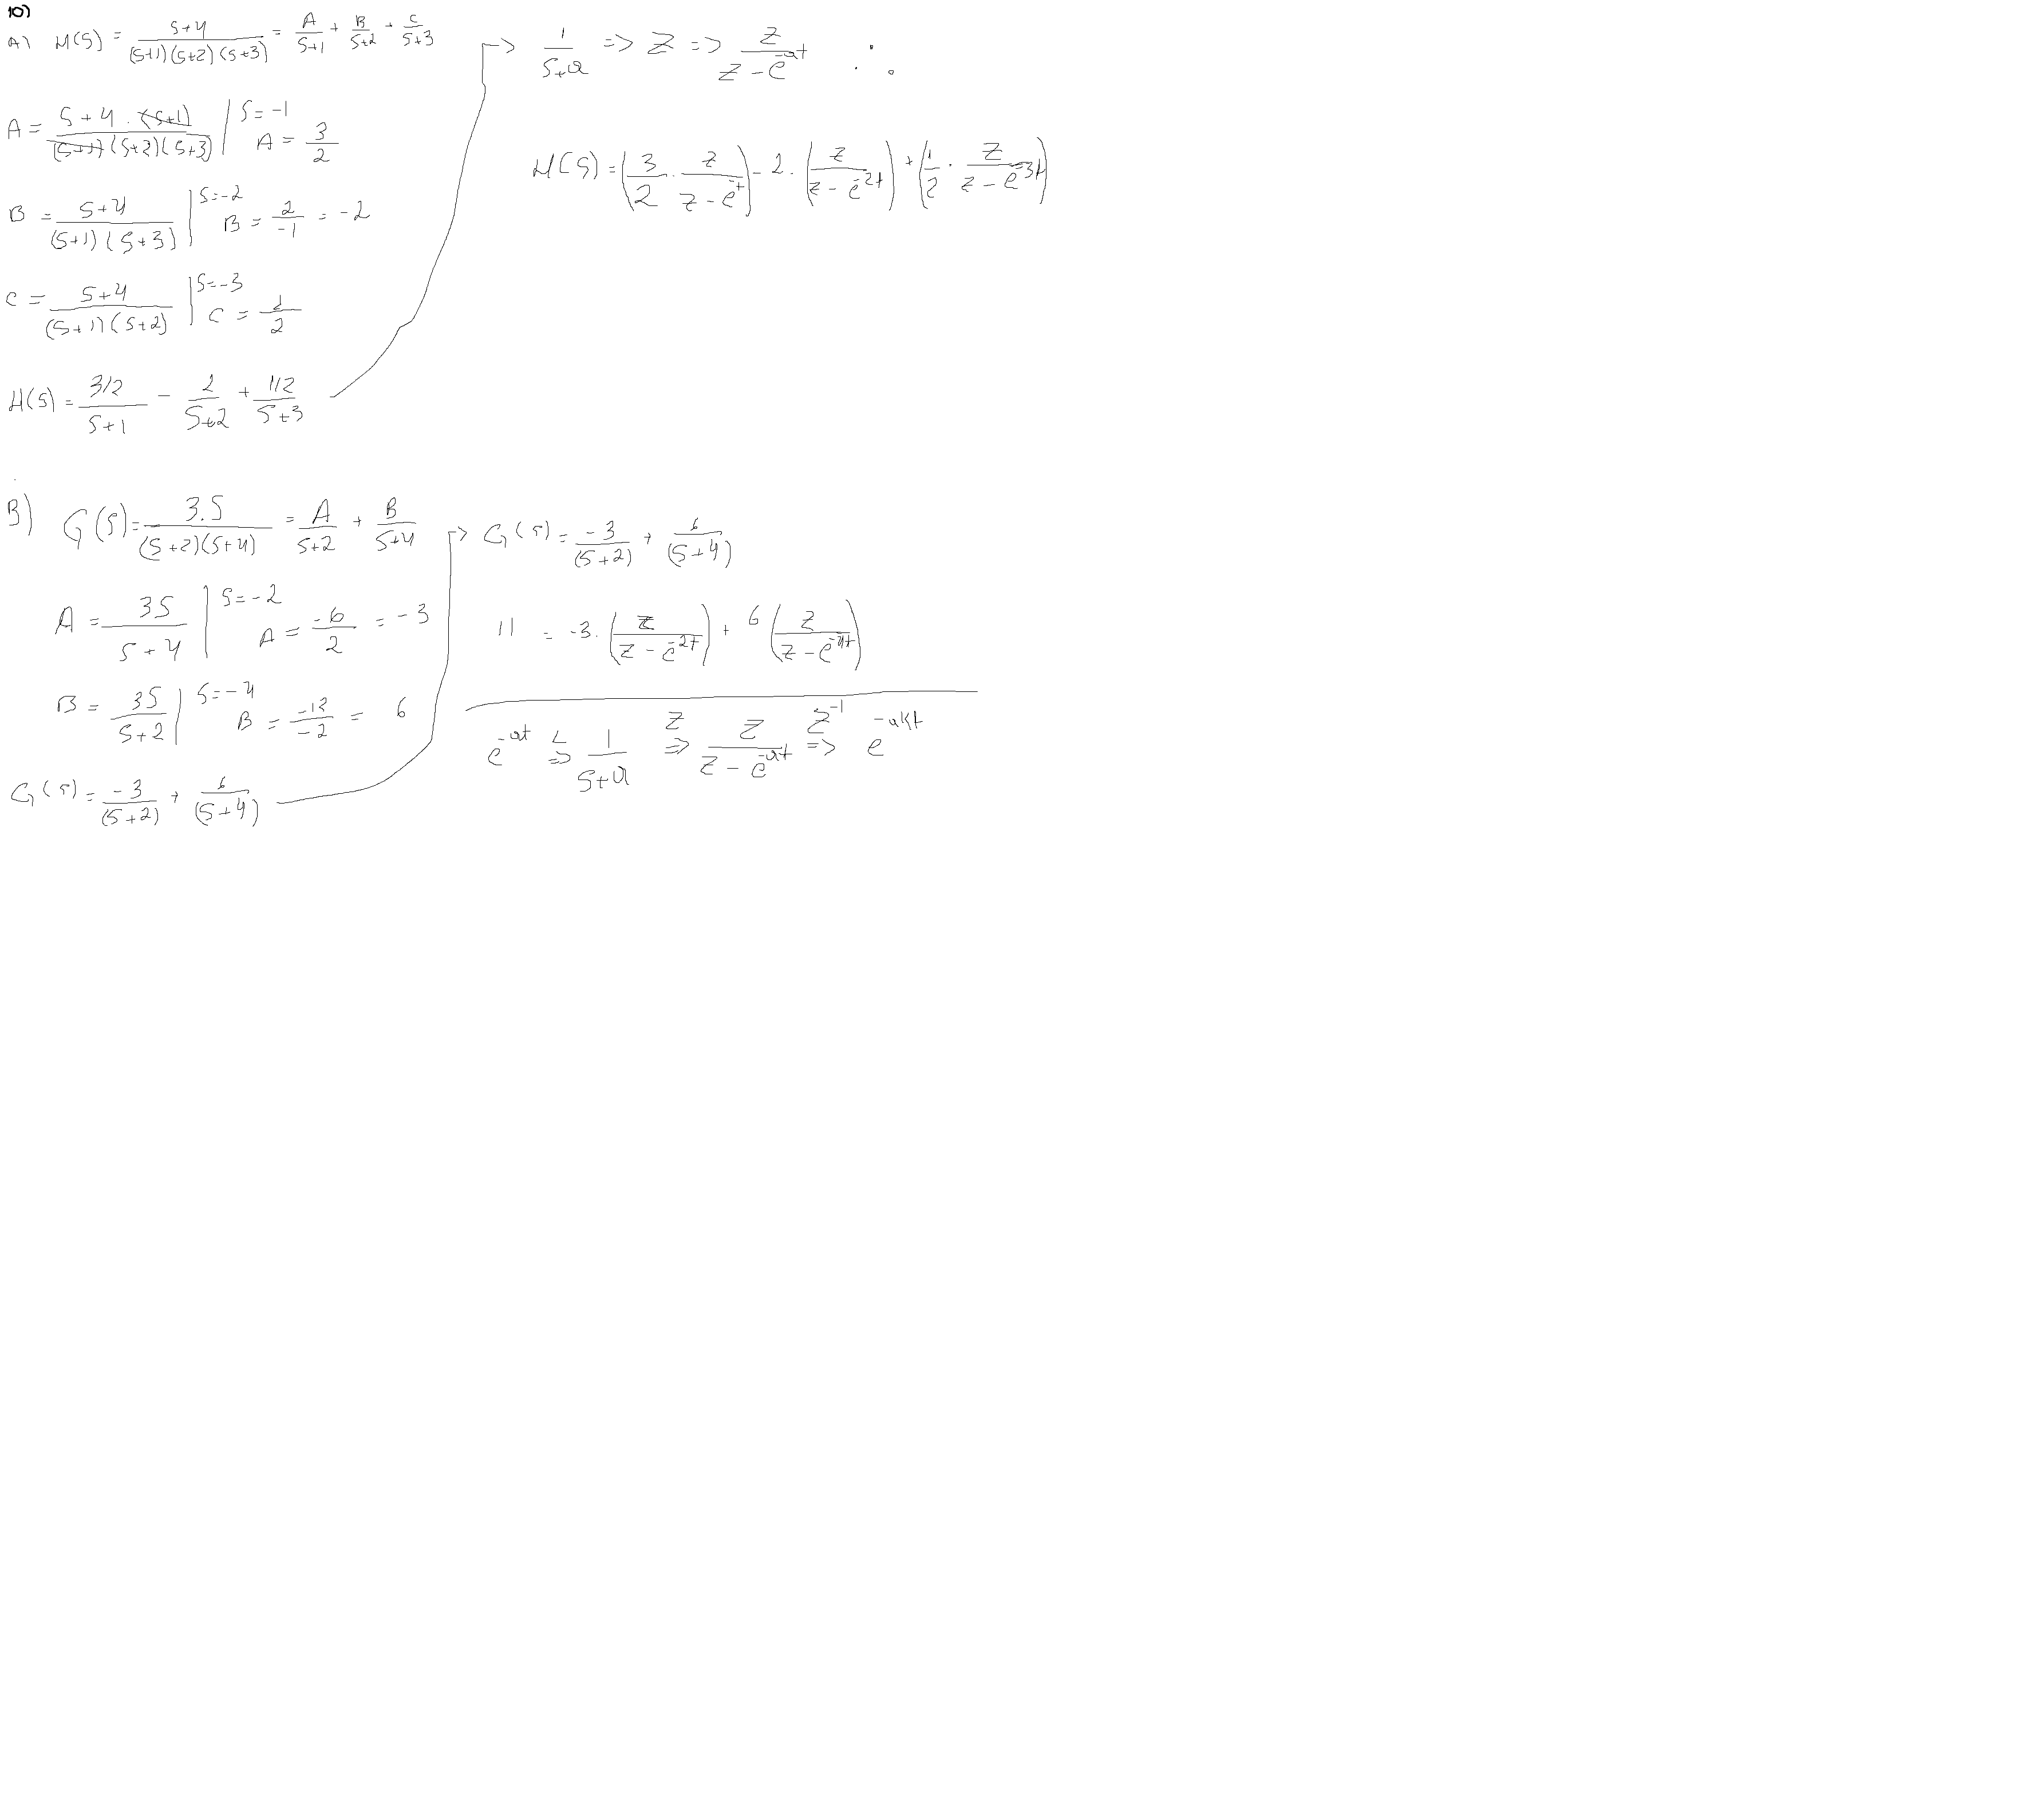 10)
A) H(S) = \frac{S+4}{(S+1)(S+2)(S+3)} = \frac{A}{S+1} + \frac{B}{S+2} + \frac{C}{S+3}
A = \frac{S+4 . (S+1)}{(S+1)(S+2)(S+3)} | S=-1 A = \frac{3}{2}
B = \frac{S+4}{(S+1)(S+3)} | S=-2 B = \frac{2}{-1} = -2
C = \frac{S+4}{(S+1)(S+2)} | S=-3 C = \frac{1}{2}
H(S) = \frac{3/2}{S+1} - \frac{2}{S+2} + \frac{1/2}{S+3}
-> \frac{1}{S+a} => Z => \frac{Z}{Z-e^{-at}} ∴
H(S) = (\frac{3}{2} . \frac{Z}{Z-e^{-t}}) - 2 . (\frac{Z}{Z-e^{-2t}}) + (\frac{1}{2} . \frac{Z}{Z-e^{-3t}})
B) G(S) = \frac{3.S}{(S+2)(S+4)} = \frac{A}{S+2} + \frac{B}{S+4}
A = \frac{3S}{S+4} | S=-2 A = \frac{-6}{2} = -3
B = \frac{3S}{S+2} | S=-4 B = \frac{-12}{-2} = 6
G(S) = \frac{-3}{(S+2)} + \frac{6}{(S+4)}
-> G(S) = \frac{-3}{(S+2)} + \frac{6}{(S+4)}
11 = -3 . (\frac{Z}{Z-e^{-2t}}) + 6 (\frac{Z}{Z-e^{-4t}})
e^{-at} L => \frac{1}{S+a} Z => \frac{Z}{Z-e^{-at}} Z^{-1} => e^{-akt}